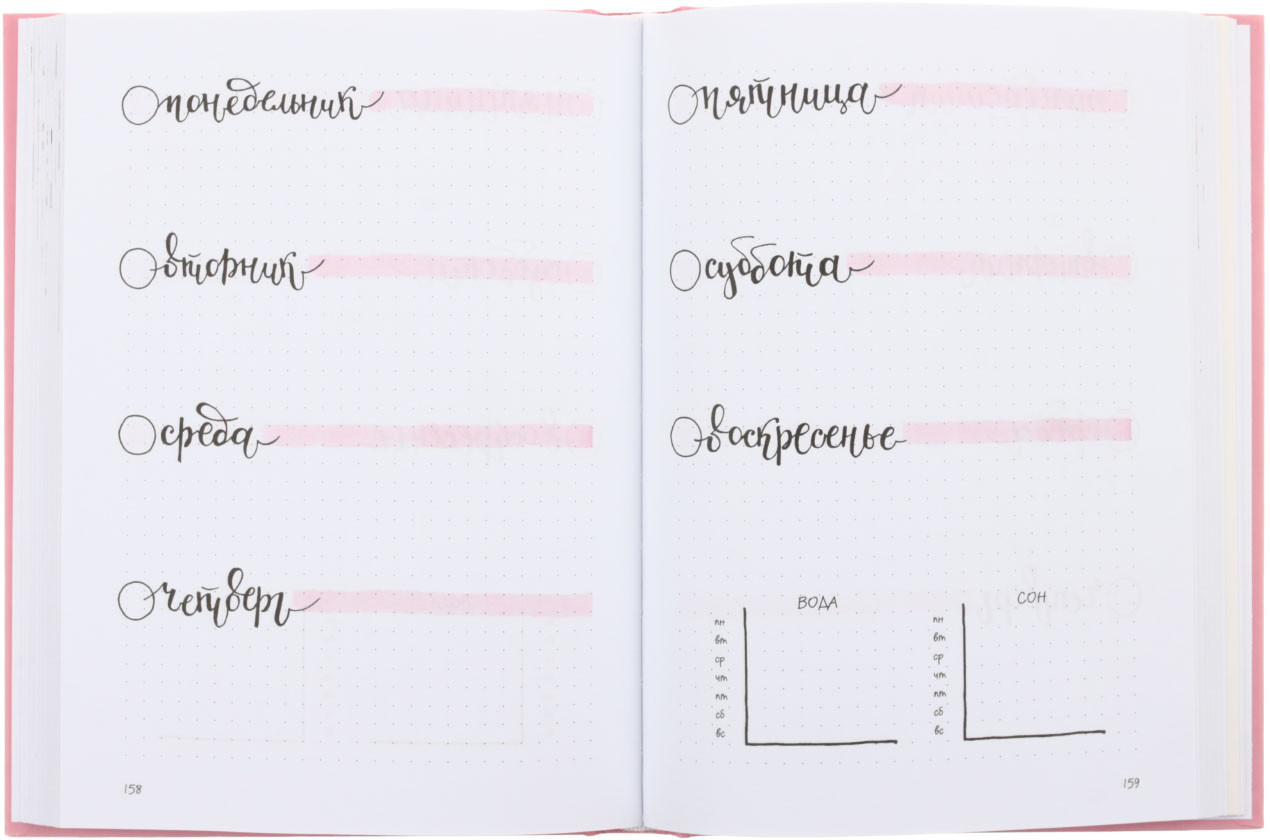 понедельник
вторник
среда
четверг
158
пятница
суббота
воскресенье
ВОДА
пн
вт
ср
чт
пт
сб
вс
СОН
пн
вт
ср
чт
пт
сб
вс
159